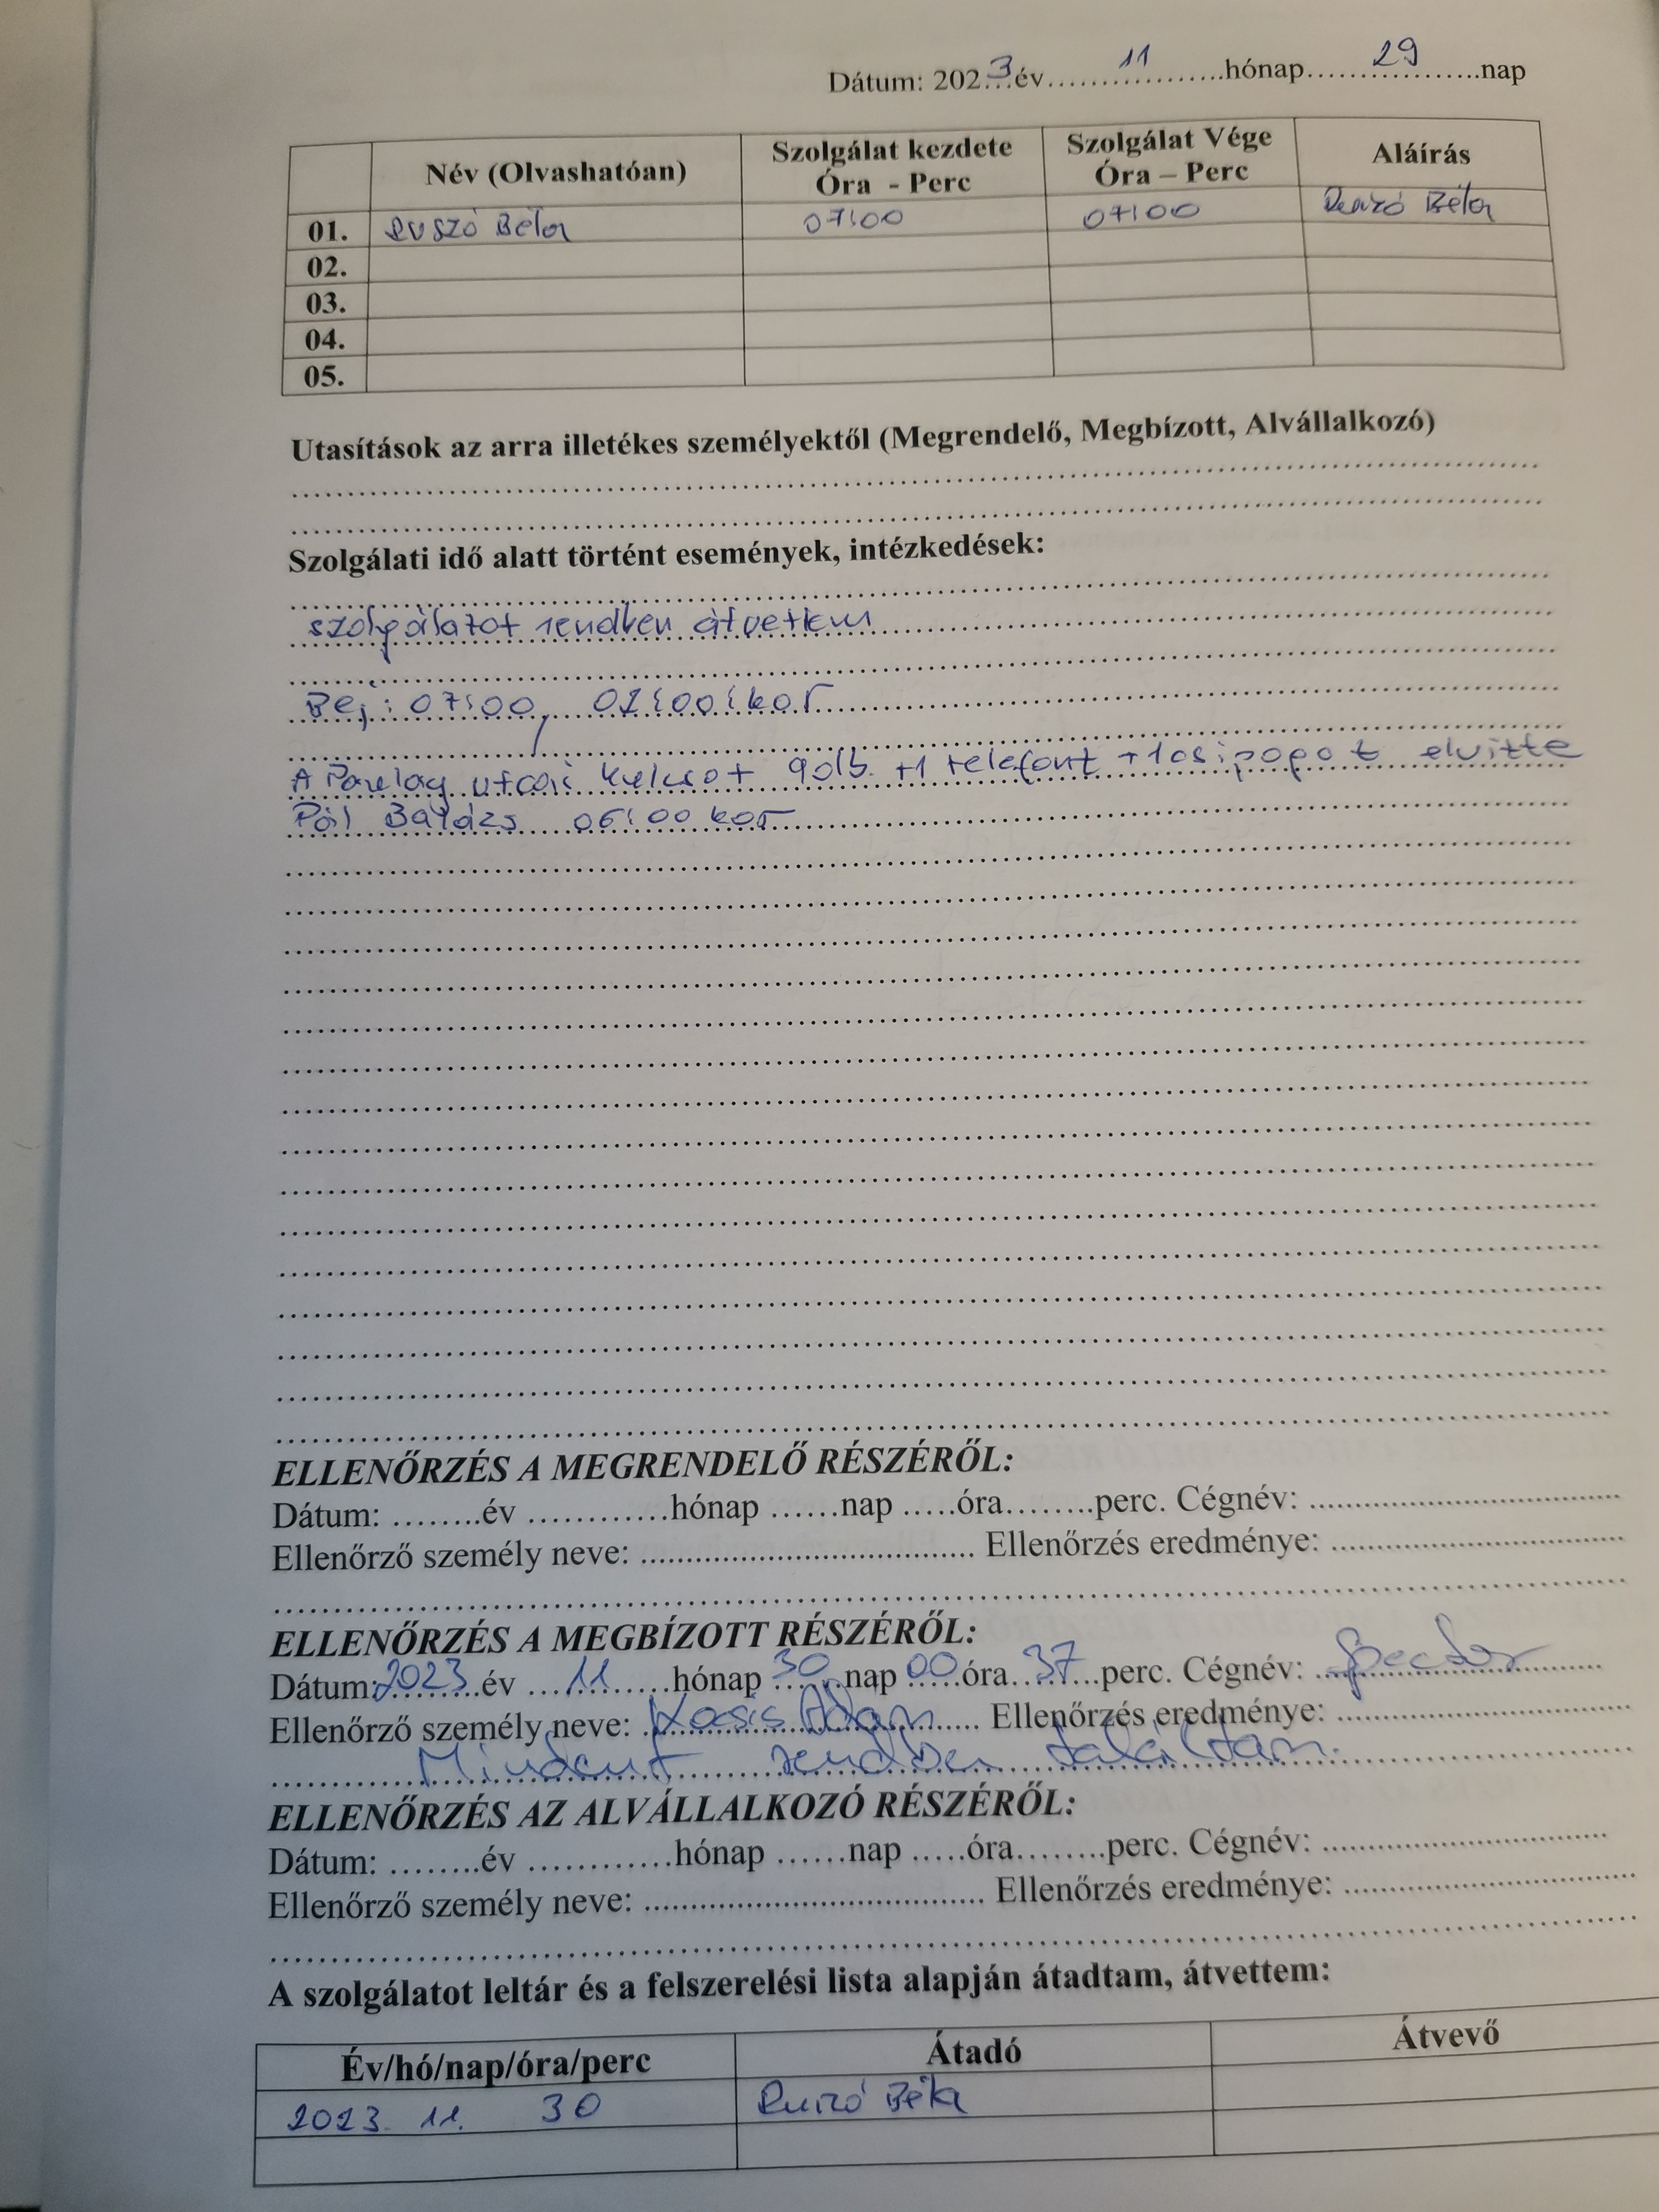 Dátum: 2023 év 11 hónap 29 nap
Név (Olvashatóan) Szolgálat kezdete Óra - Perc Szolgálat Vége Óra – Perc Aláírás
01. Ruszó Béla 07:00 07:00 Ruszó Béla
02.
03.
04.
05.
Utasítások az arra illetékes személyektől (Megrendelő, Megbízott, Alvállalkozó)
Szolgálati idő alatt történt események, intézkedések:
szolgálatot rendben átvettem
Bej: 07:00, kor
A utcai kulcsot +1 telefont + 1 csipogot elvitte
Pál Balázs 06:00 kor
ELLENŐRZÉS A MEGRENDELŐ RÉSZÉRŐL:
Dátum: ........év ............hónap ......nap .....óra........perc. Cégnév: ..............................
Ellenőrző személy neve: .............................. Ellenőrzés eredménye: ..............................
ELLENŐRZÉS A MEGBÍZOTT RÉSZÉRŐL:
Dátum: 2023 év 11 hónap 30 nap 00 óra 37 perc. Cégnév:
Ellenőrző személy neve: Ádám Ellenőrzés eredménye:
Mindent rendben találtam.
ELLENŐRZÉS AZ ALVÁLLALKOZÓ RÉSZÉRŐL:
Dátum: ........év ............hónap ......nap .....óra........perc. Cégnév: ..............................
Ellenőrző személy neve: .............................. Ellenőrzés eredménye: ..............................
A szolgálatot leltár és a felszerelési lista alapján átadtam, átvettem:
Év/hó/nap/óra/perc Átadó Átvevő
2023. 11. 30 Ruszó Béla